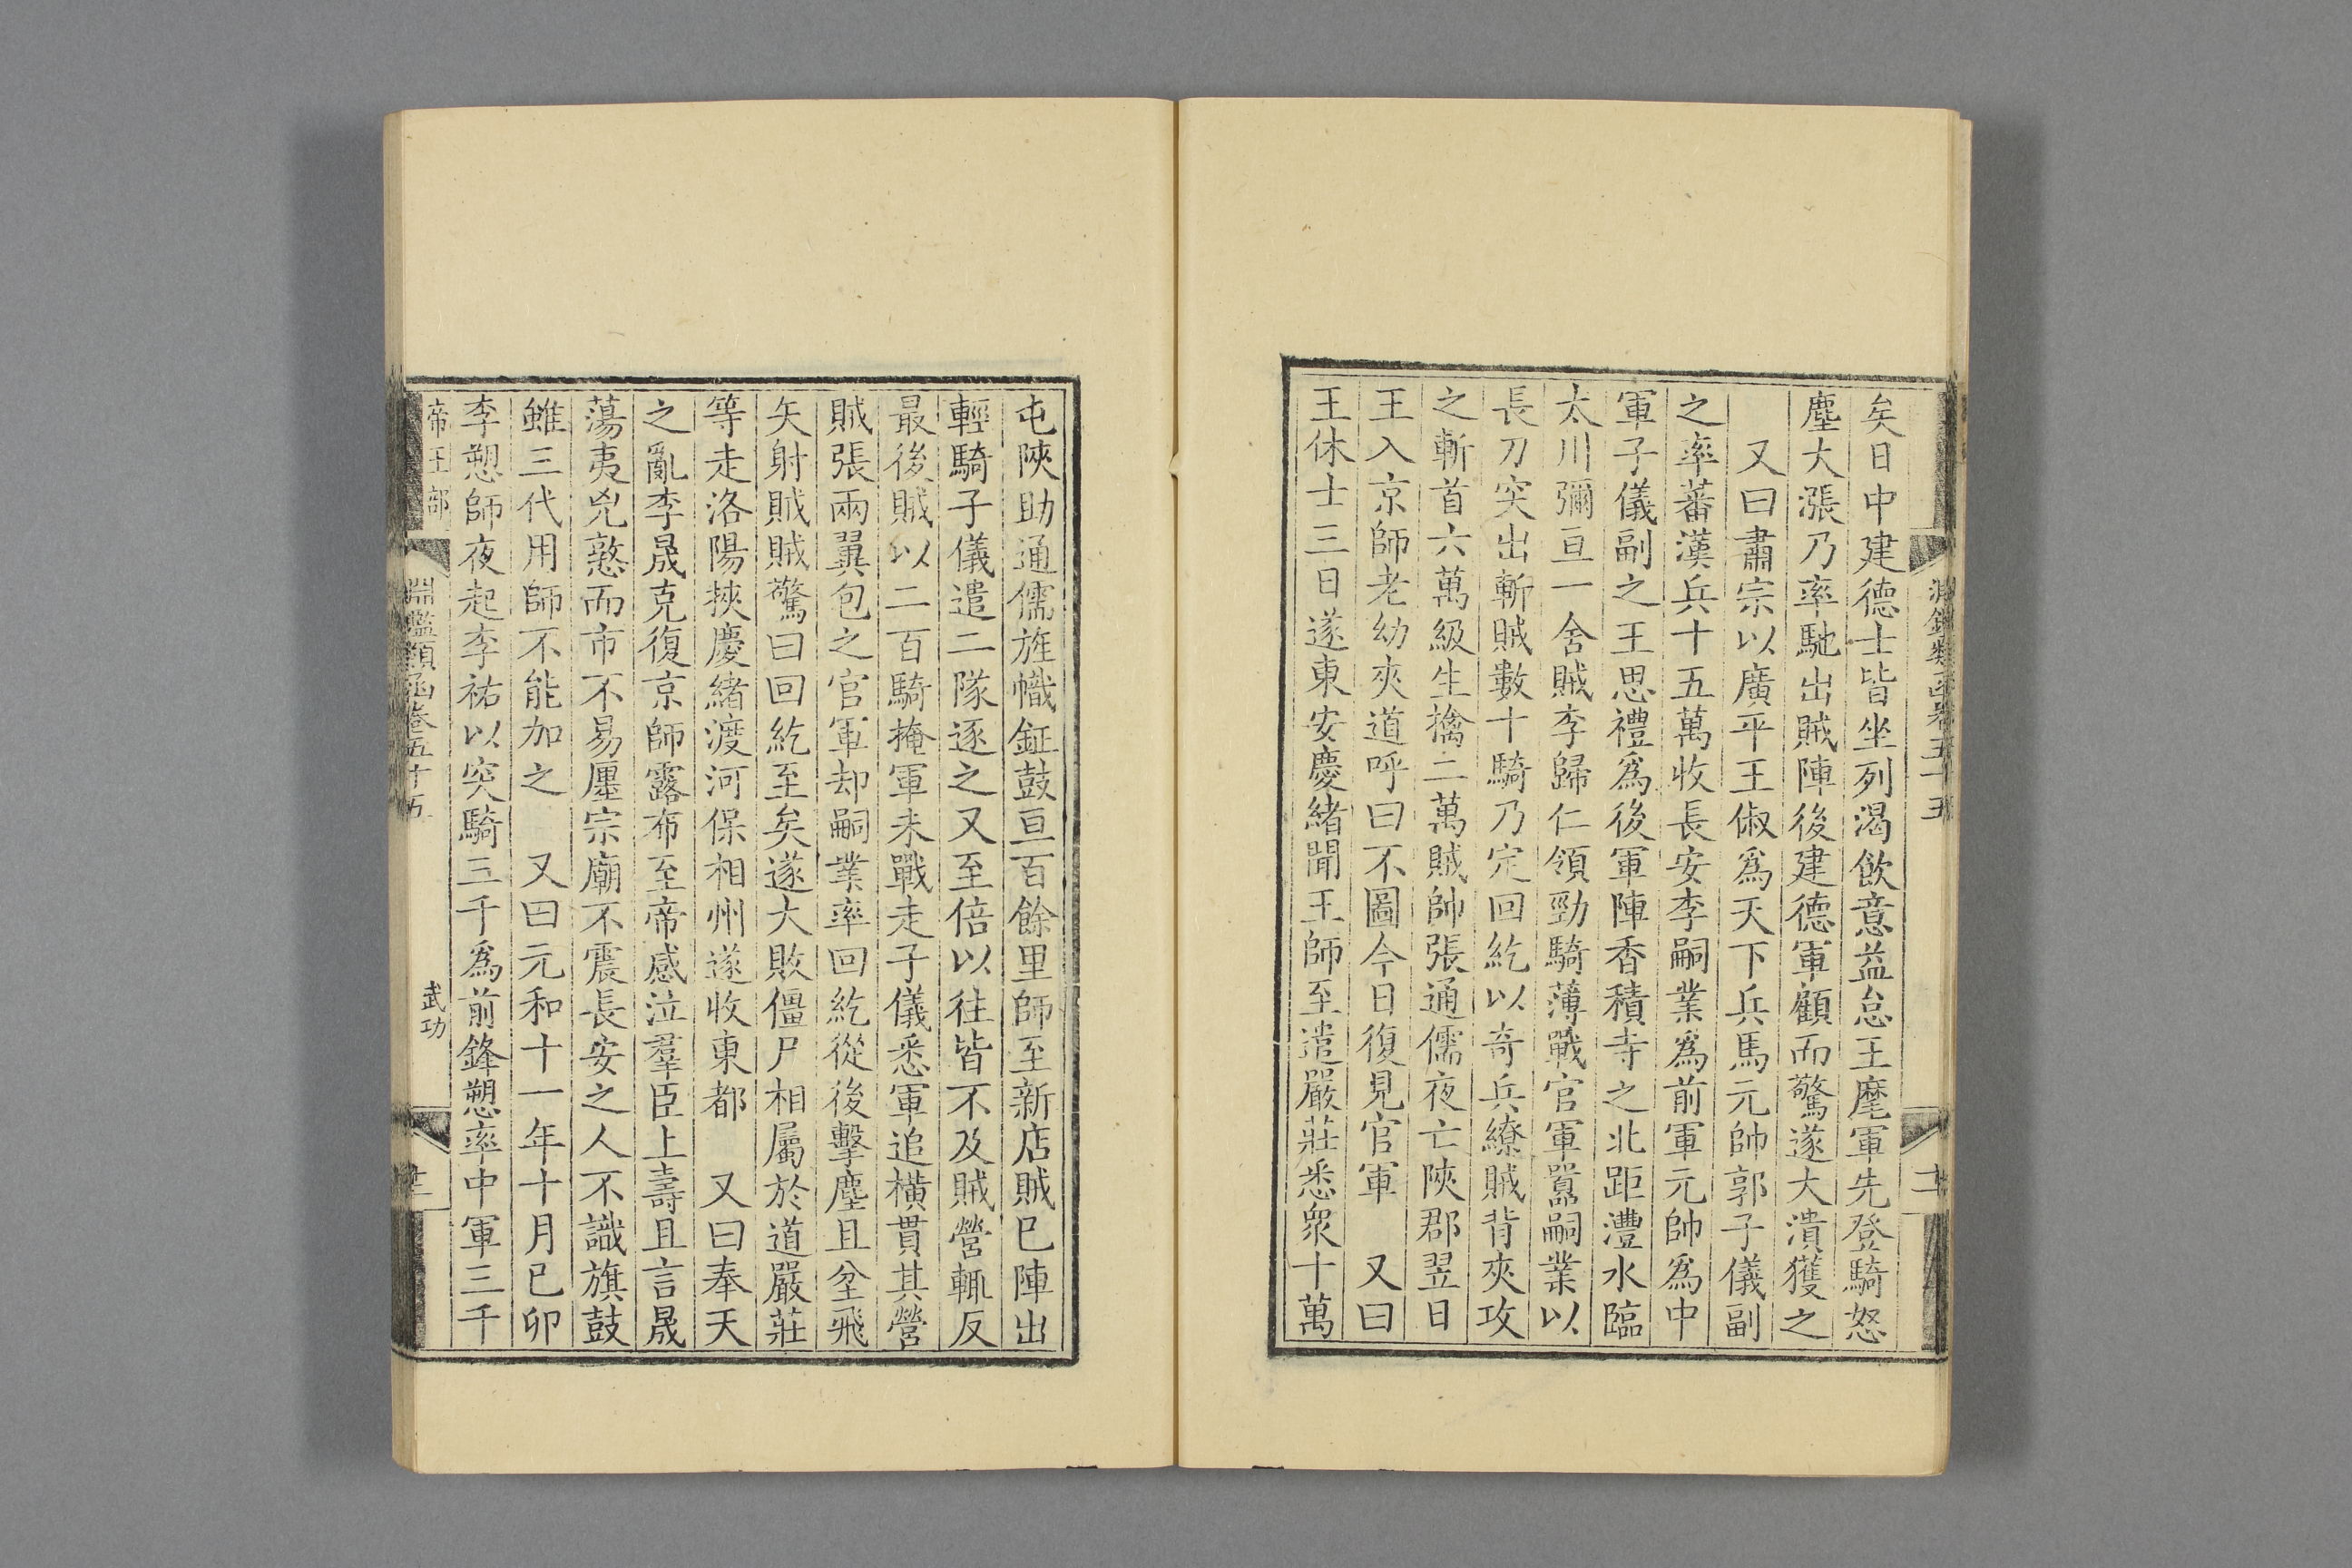 矣日中建德士皆坐列渴飲意益怠王麾軍先登騎怒
塵大漲乃率馳出賊陣後建德軍顧而驚遂大潰獲之
又曰肅宗以廣平王俶爲天下兵馬元帥郭子儀副
之率蕃漢兵十五萬收長安李嗣業爲前軍元帥爲中
軍子儀副之王思禮爲後軍陣香積寺之北距灃水臨
太川彌亘一舍賊李歸仁領勁騎薄戰官軍囂嗣業以
長刀突出斬賊數十騎乃定回紇以奇兵繚賊背夾攻
之斬首六萬級生擒二萬賊帥張通儒夜亡陝郡翌日
王入京師老幼夾道呼曰不圖今日復見官軍　又曰
王休士三日遂東安慶緒聞王師至遣嚴莊悉衆十萬
屯陝助通儒旌幟鉦鼓亘百餘里師至新店賊已陣出
輕騎子儀遣二隊逐之又至倍以往皆不及賊營輒反
最後賊以二百騎掩軍未戰走子儀悉軍追橫貫其營
賊張兩翼包之官軍却嗣業率回紇從後擊塵且坌飛
矢射賊賊驚曰回紇至矣遂大敗僵尸相屬於道嚴莊
等走洛陽挾慶緒渡河保相州遂收東都　又曰奉天
之亂李晟克復京師露布至帝感泣羣臣上壽且言晟
蕩夷兇憝而市不易廛宗廟不震長安之人不識旗鼓
雖三代用師不能加之　又曰元和十一年十月己卯
李愬師夜起李祐以突騎三千爲前鋒愬率中軍三千
帝王部
淵鑑類函卷五十五
武功